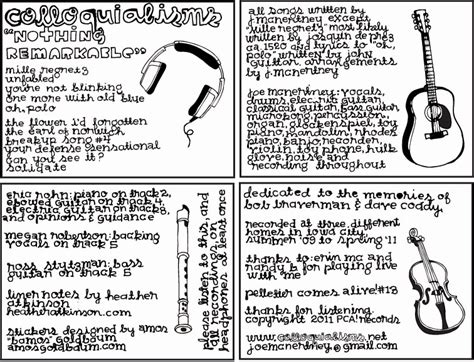 colloquialisms
"nothing
remarkable"
mille regretz
unfabled
you're not blinking
one more with old blue
oh, polo
the flower i'd forgotten
the earl of norwich
breakup song #4
your defense sensational
can you see it?
solidate
all songs written by
j.mcnertney except
"mille regretz" most likely
written by josquin deprez
ca.1520 and lyrics to "oh,
polo" written by john
guittar, arrangements
by j.mcnertney
joe mcnertney: vocals,
drums, electric guitar,
classical guitar, bass guitar
microkorg, percussion,
organ, glockenspiel, toy
piano, mandolin, rhodes
piano, banjo, recorder,
violin, toy phone, hulk
glove, noise and
recording throughout
eric rohn: piano on track 2,
ebowed guitar on track 4,
electric guitar on track 8,
and opinions & guidance
megan robertson: backing
vocals on track 5
ross stutzman: bass
guitar on track 5
liner notes by heather
atkinson
heathratkinson.com
stickers designed by amos
"bamos" goldbaum
amosgoldbaum.com
please listen to this, and
all recordings, on
headphones at least once
dedicated to the memories of
bob braverman & dave coddy.
recorded at three different
homes in iowa city
summer '09 to spring '11
thanks to: eric mc and
randy b for playing live
with me
pelletier comes alive! #18
thanks for listening
copyright 2011 PCA! records
www.colloquialisms.net
joemcnertney@gmail.com